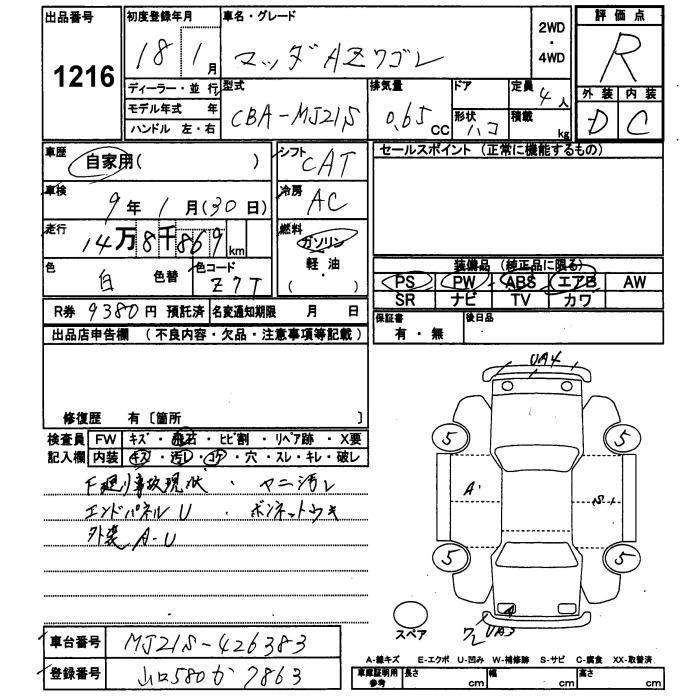 出品番号 初度登録年月 車名・グレード 2WD ・ 4WD 評価点
1216 18 1月 マツダAZワゴン R
ディーラー・並行 型式 排気量 ドア 定員 4人 外装 内装
モデル年式 年 CBA-MJ21S 0.65 CC 形状 ハコ 積載 kg D C
ハンドル 左・右
車歴 自家用( ) シフト CAT セールスポイント (正常に機能するもの)
車検 9年 1月(30日) 冷房 AC
走行 14万8千869km 燃料 ガソリン 軽・油 ( )
色 白 色替 色コード Z7T 装備品 (純正品に限る)
PS PW ABS エアB AW
SR ナビ TV カワ
R券 9380円 預託済 名変通知期限 月 日 保証書 有・無 後日品
出品店申告欄 (不良内容・欠品・注意事項等記載)
UA4
修復歴 有〔箇所 〕
検査員 FW キズ・飛石・ヒビ割・リペア跡・X要
記入欄 内装 キズ・汚レ・コゲ・穴・スレ・キレ・破レ
5 5
F廻り事故現状・マニ汚レ
エンドパネルU・ボンネットウキ
A' S1
外装A-U
5 5
A
スペア UA3
車台番号 MJ21S-426383
A-線キズ E-エクボ U-凹み W-補修跡 S-サビ C-腐食 XX-取替済
登録番号 山口580か7863
車庫証明用参考 長さ cm 幅 cm 高さ cm